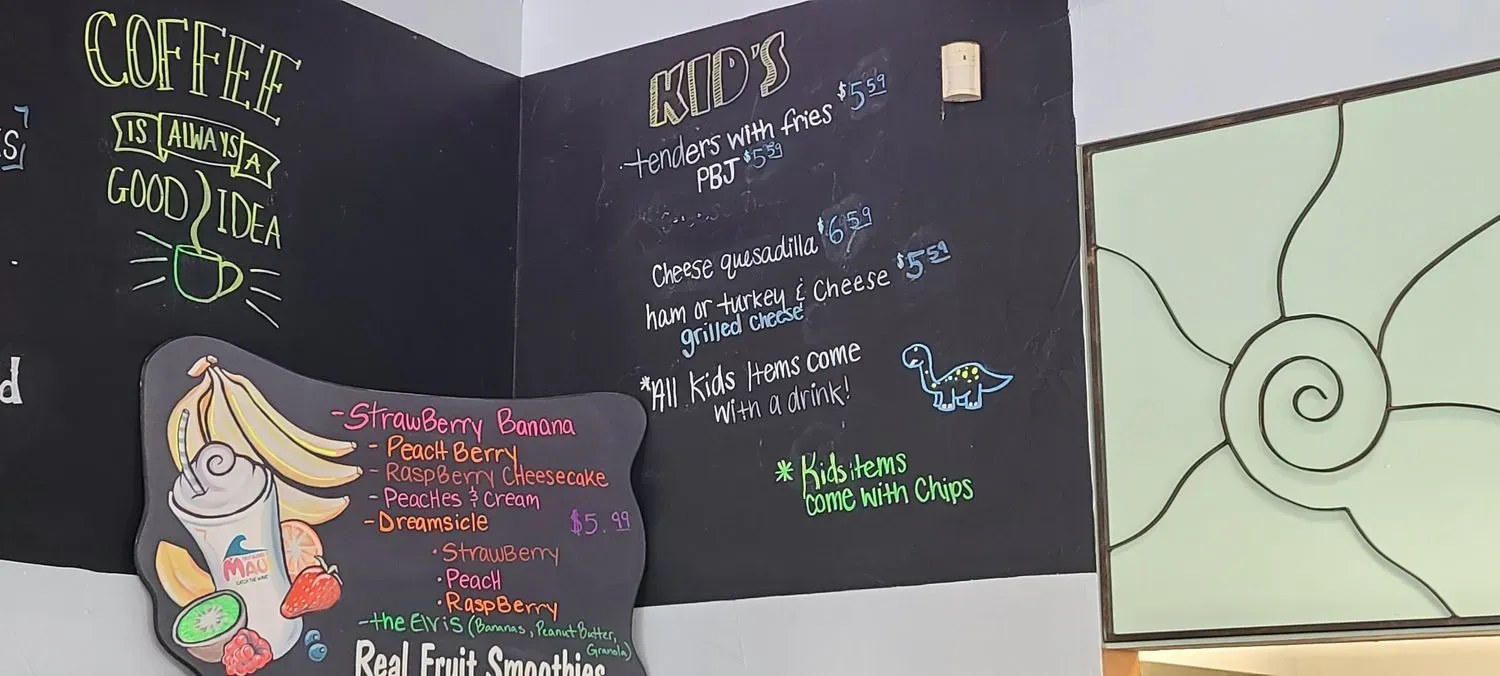 COFFEE
IS ALWAYS A
GOOD IDEA
KID'S
tenders with fries $5.59
PBJ $5.59
Cheese quesadilla $6.59
ham or turkey & Cheese $5.59
grilled cheese
*All Kids Items come
with a drink!
* Kids items
come with Chips
-StrawBerry Banana
- PeachBerry
- RaspBerry Cheesecake
- Peaches & Cream
-Dreamsicle $5.99
·StrawBerry
·Peach
·RaspBerry
-the Elvis (Bananas, Peanut Butter,
Granola)
Real Fruit Smoothies
MAUI
CATCH THE WAVE